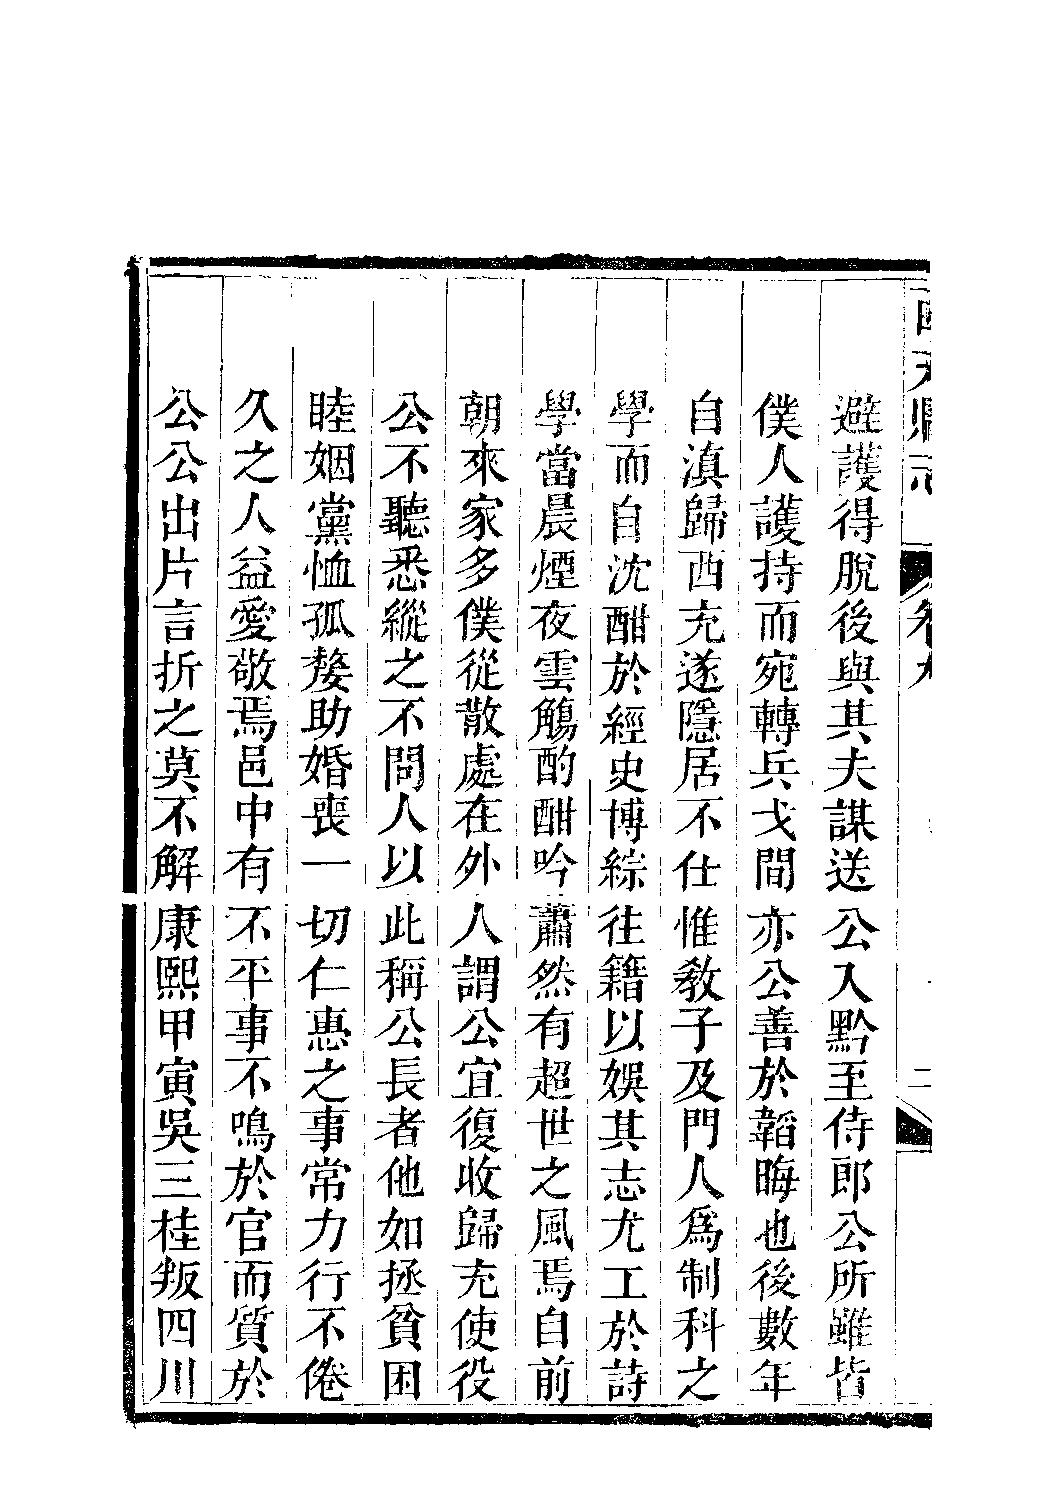 西充縣志 卷九 二
避護得脫後與其夫謀送公入黔至侍郎公所雖皆
僕人護持而宛轉兵戈間亦公善於韜晦也後數年
自滇歸西充遂隱居不仕惟教子及門人爲制科之
學而自沈酣於經史博綜往籍以娛其志尤工於詩
學當晨煙夜雲觴酌酣吟蕭然有超世之風焉自前
朝來家多僕從散處在外人謂公宜復收歸充使役
公不聽悉縱之不問人以此稱公長者他如拯貧困
睦姻黨恤孤嫠助婚喪一切仁惠之事常力行不倦
久之人益愛敬焉邑中有不平事不鳴於官而質於
公公出片言折之莫不解康熙甲寅吳三桂叛四川